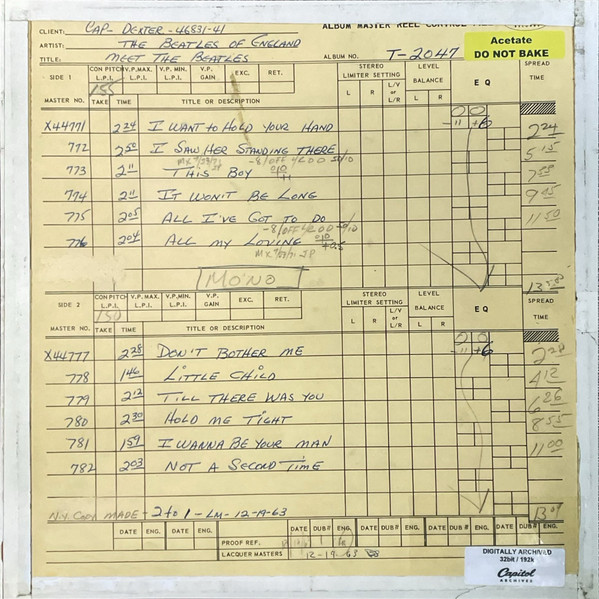 CLIENT: CAP- DEXTER -46831-41
ALBUM MASTER REEL
ARTIST: THE BEATLES OF ENGLAND
TITLE: MEET THE BEATLES
ALBUM NO. T-2047
Acetate
DO NOT BAKE
SIDE 1 CON PITCH L.P.I. V.P.MAX. L.P.I. V.P.MIN. L.P.I. V.P. GAIN EXC. RET. STEREO LIMITER SETTING LEVEL BALANCE EQ SPREAD TIME
155
L R L/V or L/R L R
MASTER NO. TAKE TIME TITLE OR DESCRIPTION
-11 +6
X44771 2 24 I WANT TO HOLD YOUR HAND 2 24
772 2 50 I SAW HER STANDING THERE 5 15
773 2 11 THIS BOY
774 2 11 IT WON'T BE LONG
775 2 05 ALL I'VE GOT TO DO 11 50
776 2 04 ALL MY LOVING
MONO
SIDE 2 CON PITCH L.P.I. V.P. MAX. L.P.I. V.P.MIN. L.P.I. V.P. GAIN EXC. RET. STEREO LIMITER SETTING LEVEL BALANCE EQ SPREAD TIME
150
L R L/V or L/R L R
MASTER NO. TAKE TIME TITLE OR DESCRIPTION
-11 +6
X44777 2 28 DON'T BOTHER ME 2 28
778 1 46 LITTLE CHILD 4 12
779 2 12 TILL THERE WAS YOU 6 26
780 2 30 HOLD ME TIGHT 8 55
781 1 59 I WANNA BE YOUR MAN 11 00
782 2 03 NOT A SECOND TIME
N.Y. COPY MADE - 2 to 1 - LM - 12-19-63
DATE ENG. DATE ENG. DATE ENG. DATE DUB# ENG. DATE DUB# ENG. DATE DUB# ENG.
PROOF REF.
LACQUER MASTERS 12-19-63
DIGITALLY ARCHIVED
32bit / 192k
Capitol
ARCHIVES